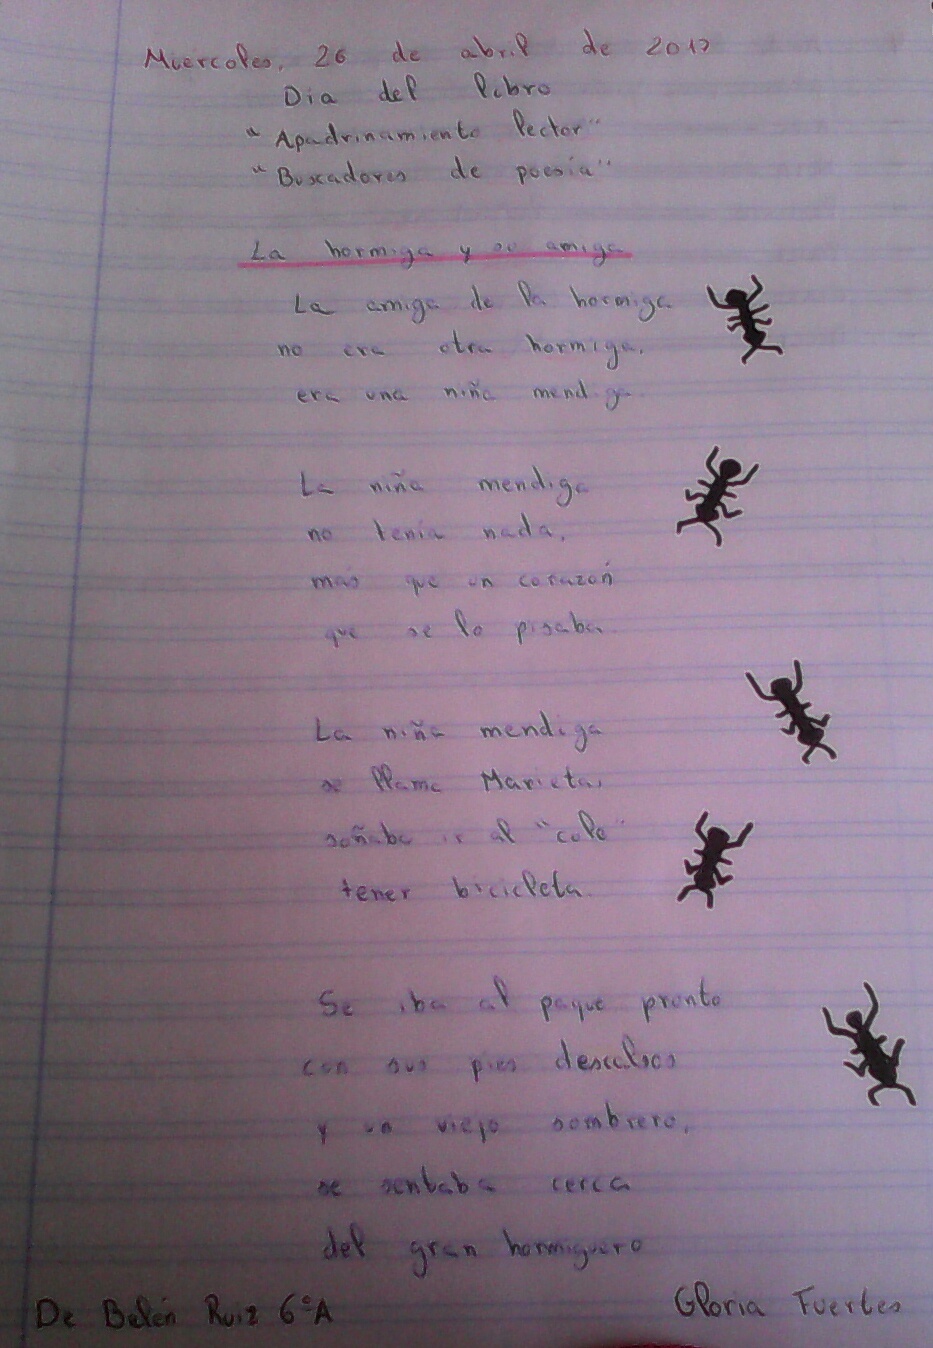 Miercoles, 26 de abril de 2017
Dia del libro
"Apadrinamiento lector"
"Buscadores de poesía"
La hormiga y su amiga
La amiga de la hormiga
no era otra hormiga,
era una niña mendiga
La niña mendiga
no tenía nada,
mas que un corazón
que se lo pisaba.
La niña mendiga
se llama Marieta,
soñaba ir al "cole"
tener bicicleta.
Se iba al paque pronto
con sus pies descalsos
y un viejo sombrero,
se sentaba cerca
del gran hormiguero
De Belén Ruiz 6ºA
Gloria Fuertes